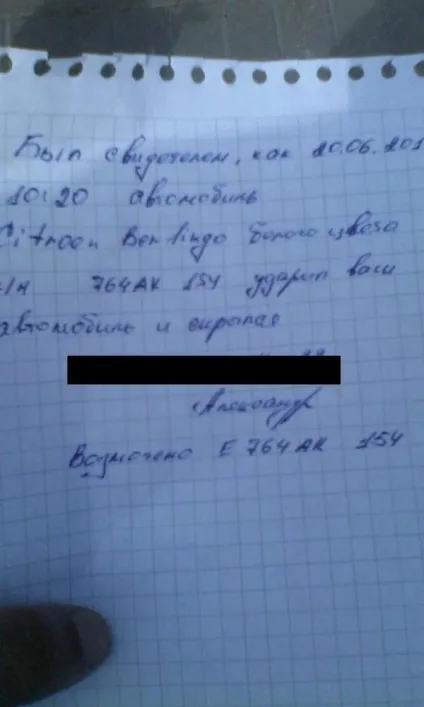 Был свидетелем, как 20.06.201
10:20 автомобиль
Citroen Berlingo белого цвета
г/н 764АК 154 ударил ваш
автомобиль и скрылся
Александр
Возможно Е 764 АК 154